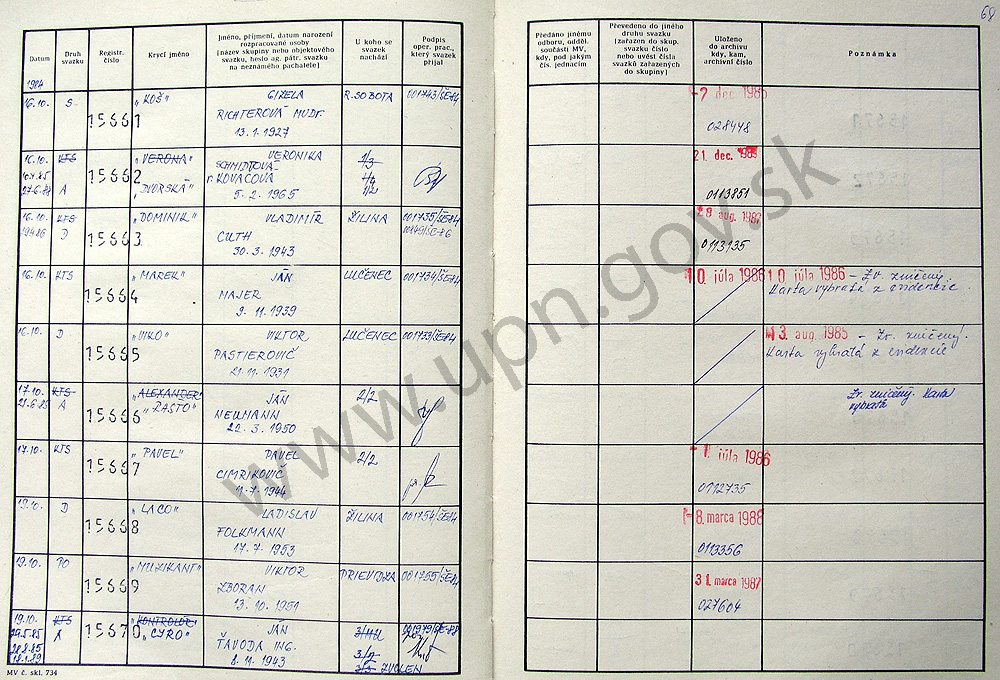 68
Datum
Druh svazku
Registr. číslo
Krycí jméno
Jméno, příjmení, datum narození
rozpracované osoby
(název skupiny nebo objektového
svazku, heslo ag. pátr. svazku
na neznámého pachatele)
U koho se
svazek
nachází
Podpis
oper. prac.,
který svazek
přijal
Předáno jinému
odboru, odděl.
součásti MV,
kdy, pod jakým
čís. jednacím
Převedeno do jiného
druhu svazku
(zařazen do skup.
svazku číslo
nebo uvést čísla
svazků zařazených
do skupiny)
Uloženo
do archivu
kdy, kam,
archivní číslo
Poznámka
1984
16.10. S 15661 "KOŠ" GIZELA R. SOBOTA 001743/ŠE-84 7 dec. 1985
RICHTEROVÁ MUDr.
13.1.1927 028448
16.10. KTS 15662 "VERONA" VERONIKA 1/3 21. dec. 1989
SCHMIDTOVÁ
r. KOVÁČOVÁ
27.6.88 A "DVORSKÁ" 5.2.1965 0113851
16.10. KTS 15663 "DOMINIK" VLADIMÍR ŽILINA 001735/ŠE-84 28 aug. 1987
D CUTH
30.3.1943 0113135
16.10. KTS 15664 "MAREK" JÁN LUČENEC 001734/ŠE-84 10 júla 1986 10 júla 1986 - Zv. zničený.
MAJER Karta vybratá z evidencie.
9.11.1939
16.10. D 15665 "VIKO" VIKTOR LUČENEC 001733/ŠE-84 13 aug. 1985 - Zv. zničený.
PASTIEROVIČ Karta vybratá z evidencie
21.11.1931
17.10. KTS 15666 "ALEXANDER" JÁN 2/2 Zv. zničený. Karta
21.6.85 A "RASTO" NEUMANN vybratá
22.3.1950
17.10. KTS 15667 "PAVEL" PAVEL 2/2 1 júla 1986
CIMRIKOVIČ
11.7.1944 0112735
19.10. D 15668 "LACO" LADISLAV ŽILINA 001754/ŠE-84 8. marca 1988
FOLKMANN
17.7.1953 0113356
19.10. PO 15669 "MUZIKANT" VIKTOR PRIEVIDZA 001755/ŠE-84 31 marca 1987
ZBORAN
13.10.1951 027604
19.10. KTS 15670 "KONTROLÓR" JÁN
29.5.85 A "CYRO" ŤAVODA ING.
28.8.85
18.1.89 8.11.1943 ZVOLEN
MV č. skl. 734
www.upn.gov.sk